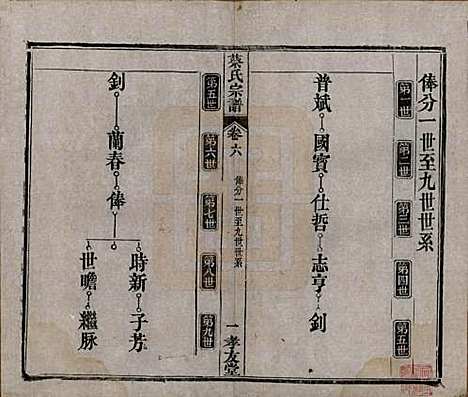 俸分一世至九世世系
第一世 第二世 第三世 第四世 第五世
普斌 國寶 仕哲 志亨 釗
葉氏宗譜 卷六 俸分一世至九世世系 一 孝友堂
第五世 第六世 第七世 第八世 第九世
釗 蘭春 俸 時新 子芳
世瞻 繼脉